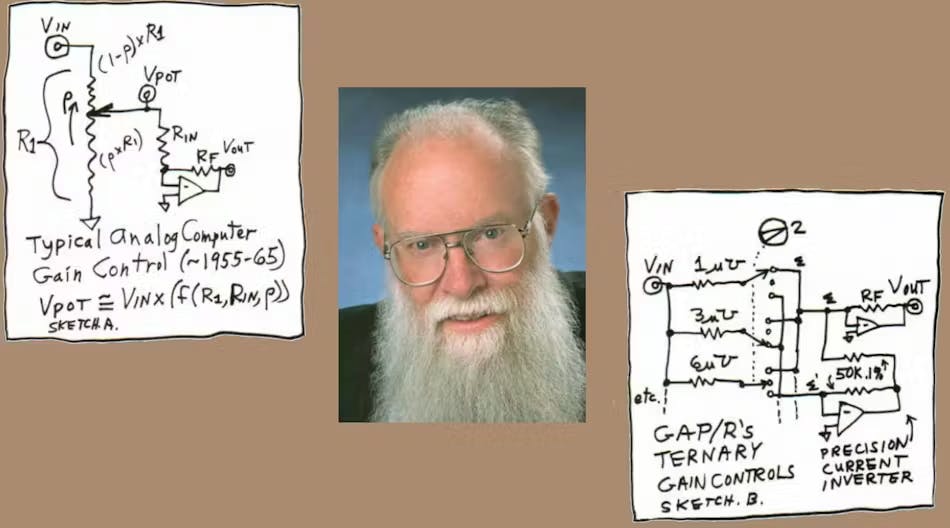 VIN
(1-P)×R1
VPOT
P
R1
(P×R1)
RIN
RF
VOUT
-
Typical Analog Computer
Gain Control (~1955-65)
VPOT ≅ VIN×(f(R1,RIN,P))
SKETCH A.
2
VIN
1μ℧
Σ
3μ℧
Σ
RF
VOUT
-
6μ℧
Σ'
50K.1%
etc.
-
GAP/R's
TERNARY
GAIN CONTROLS
SKETCH. B.
PRECISION
CURRENT
INVERTER